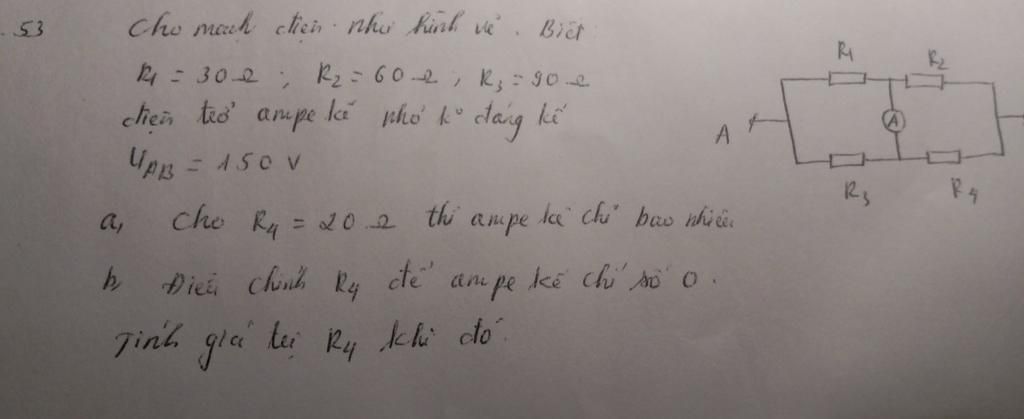 53 Cho mạch điện như hình vẽ. Biết
R1 = 30Ω ; R2 = 60Ω ; R3 = 90Ω
điện trở ampe kế nhỏ k° đáng kể
UAB = 150 V
a, Cho R4 = 20Ω thì ampe kế chỉ bao nhiêu
b, Điều chỉnh R4 để ampe kế chỉ số 0.
Tính giá trị R4 khi đó.
R1 R2
A A
R3 R4